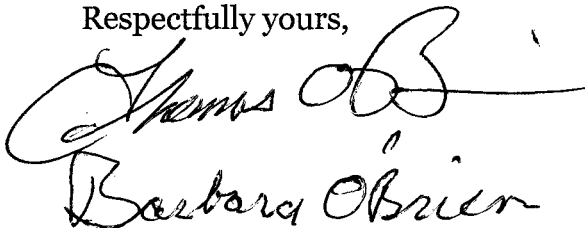 Respectfully yours,
Thomas O'B
Barbara O'Brien